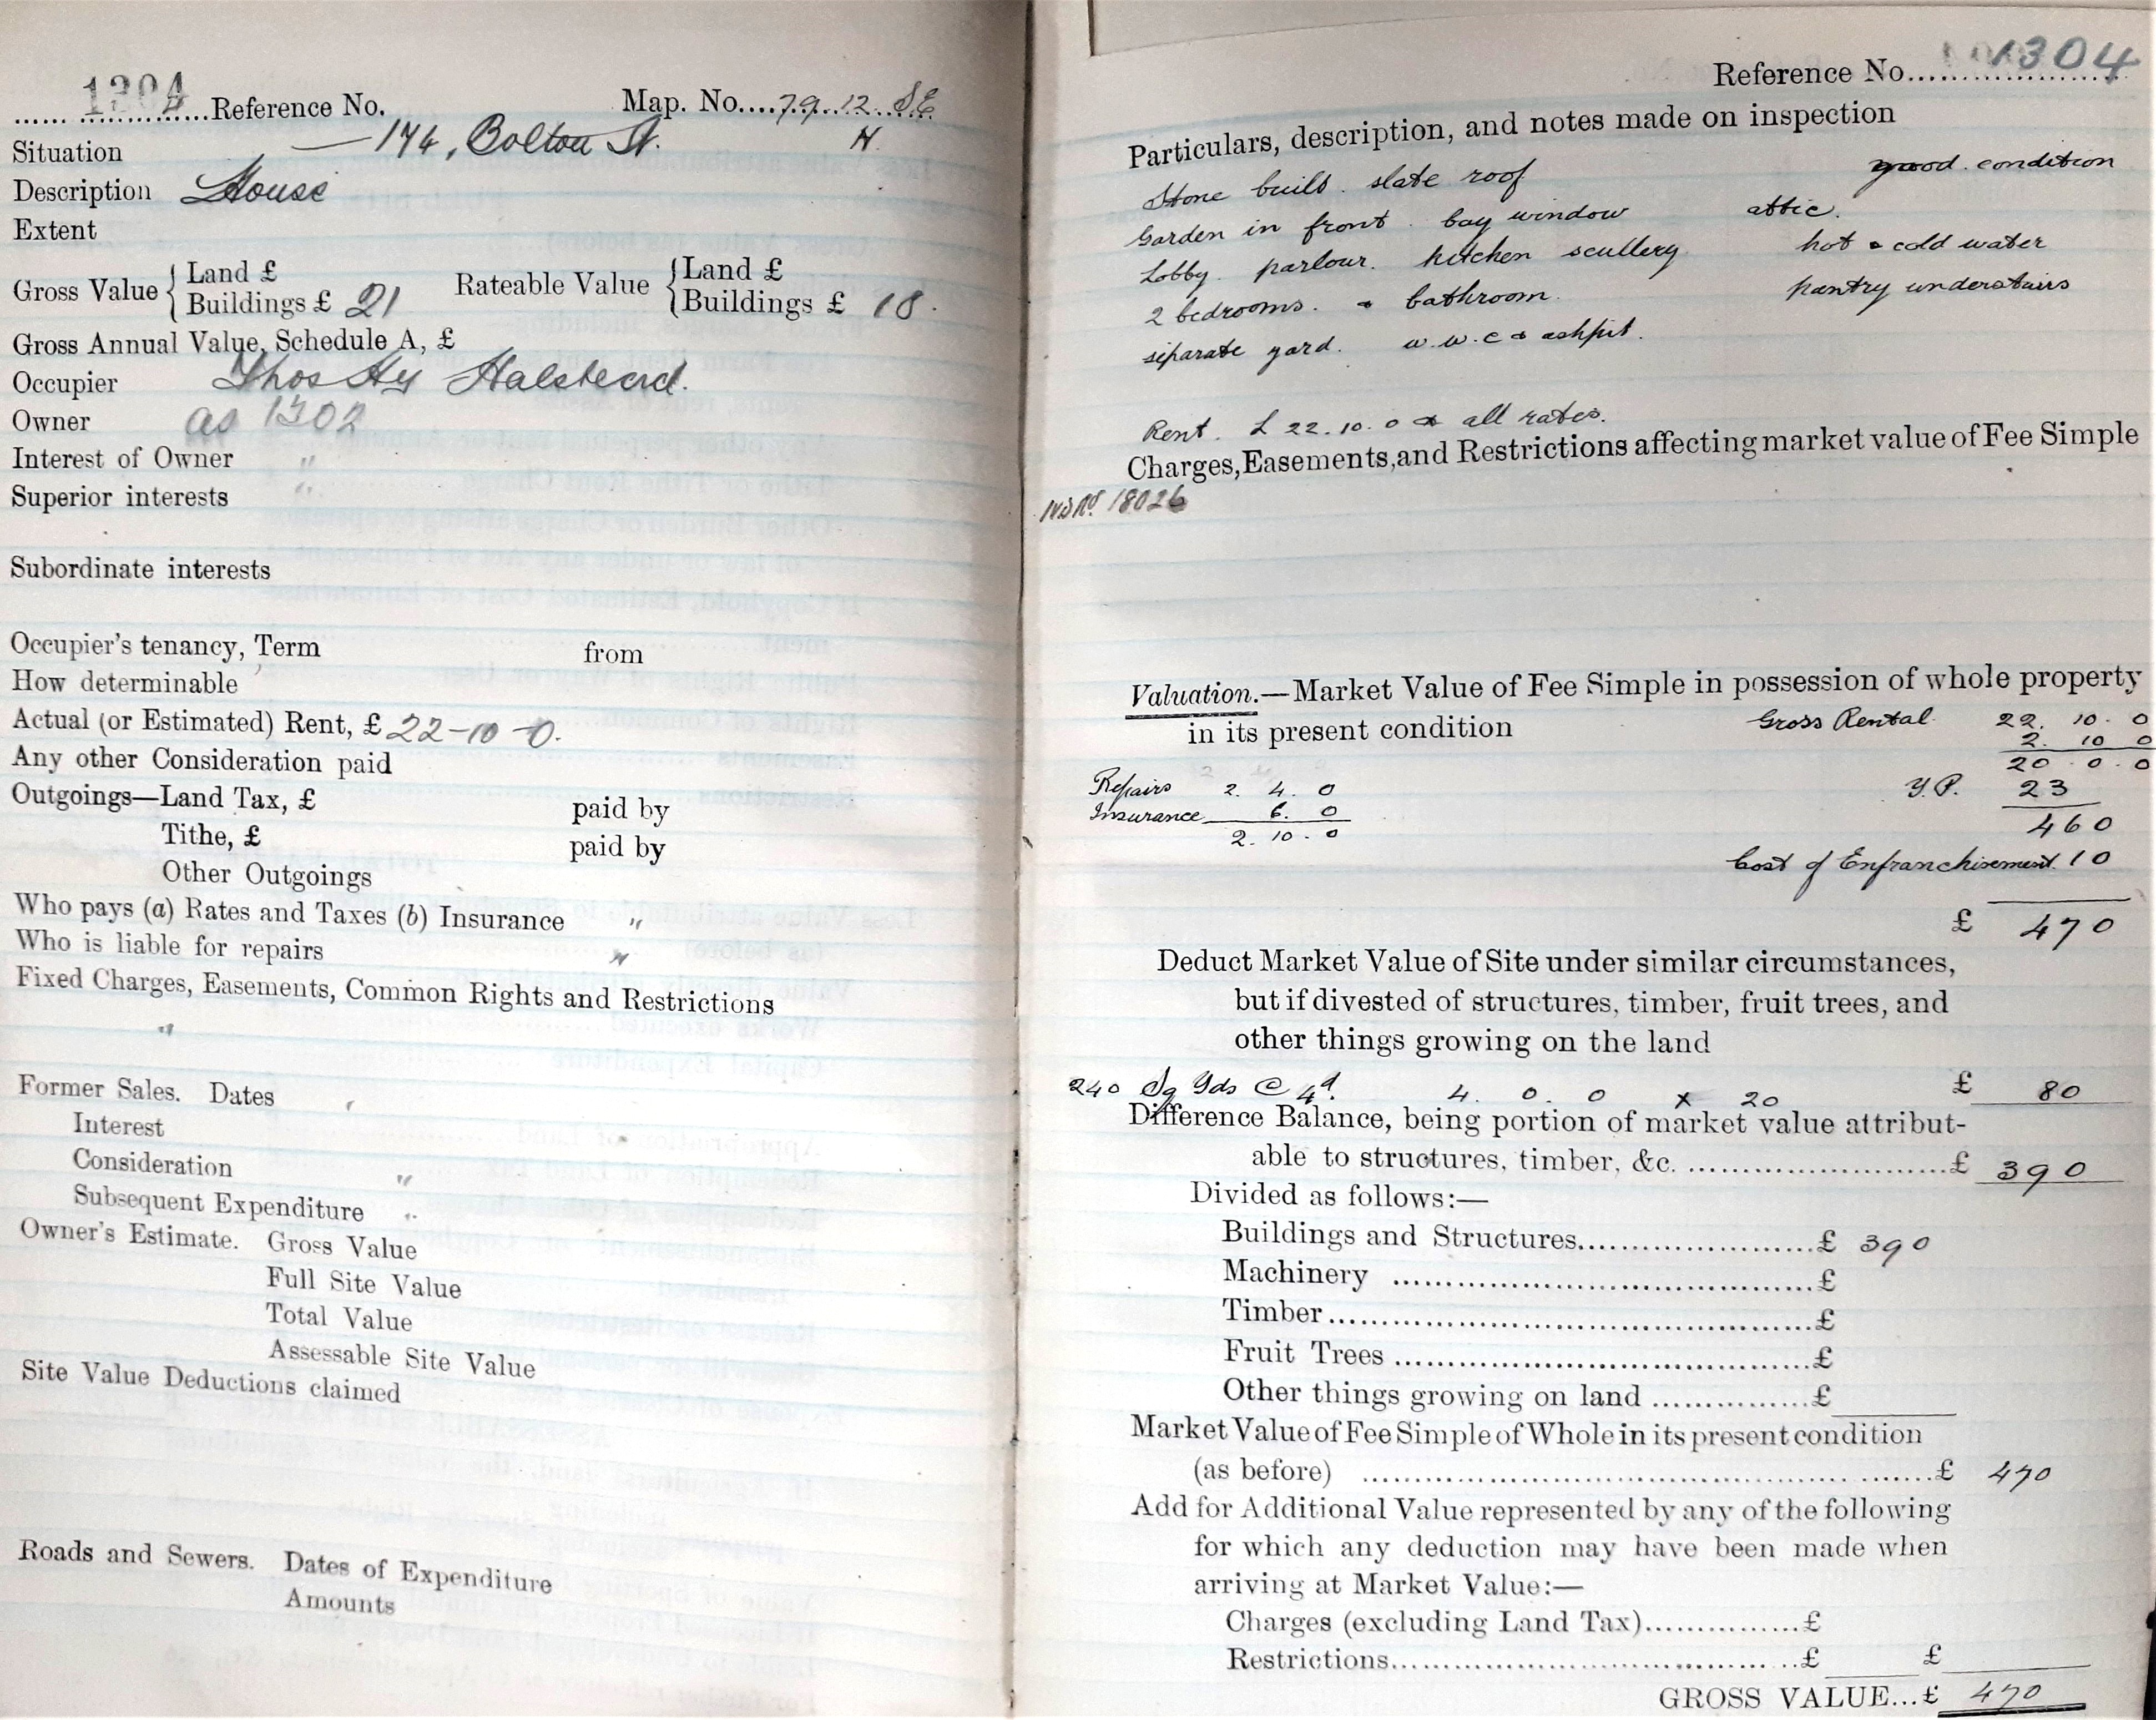 1304 Reference No. Map. No. 79. 12. S.E.
Situation — 174, Bolton St. N.
Description House
Extent
Gross Value { Land £ Rateable Value { Land £
Buildings £ 21 Buildings £ 18.
Gross Annual Value, Schedule A, £
Occupier Thos Hy Halstead.
Owner as 1302
Interest of Owner "
Superior interests "
Subordinate interests
Occupier's tenancy, Term from
How determinable
Actual (or Estimated) Rent, £ 22-10-0.
Any other Consideration paid
Outgoings—Land Tax, £ paid by
Tithe, £ paid by
Other Outgoings
Who pays (a) Rates and Taxes (b) Insurance "
Who is liable for repairs "
Fixed Charges, Easements, Common Rights and Restrictions
"
Former Sales. Dates "
Interest
Consideration "
Subsequent Expenditure "
Owner's Estimate. Gross Value
Full Site Value
Total Value
Assessable Site Value
Site Value Deductions claimed
Roads and Sewers. Dates of Expenditure
Amounts
Reference No. 1304
Particulars, description, and notes made on inspection
Stone built. slate roof good. condition
Garden in front. bay window attic.
Lobby. parlour. kitchen scullery hot & cold water
2 bedrooms. & bathroom. pantry understairs
separate yard. w.w.c & ashpit.
Rent. £ 22.10.0 & all rates.
Charges, Easements, and Restrictions affecting market value of Fee Simple
18026
Valuation.—Market Value of Fee Simple in possession of whole property
in its present condition Gross Rental 22. 10. 0
2. 10 0
20 . 0. 0
Repairs 2. 4. 0 Y.P. 23
Insurance 6. 0
2. 10. 0 460
Cost of Enfranchisement 10
£ 470
Deduct Market Value of Site under similar circumstances,
but if divested of structures, timber, fruit trees, and
other things growing on the land
240 Sq Yds @ 4d. 4. 0. 0 x 20 £ 80
Difference Balance, being portion of market value attribut-
able to structures, timber, &c. £ 390
Divided as follows:—
Buildings and Structures £ 390
Machinery £
Timber £
Fruit Trees £
Other things growing on land £
Market Value of Fee Simple of Whole in its present condition
(as before) £ 470
Add for Additional Value represented by any of the following
for which any deduction may have been made when
arriving at Market Value:—
Charges (excluding Land Tax) £
Restrictions £ £
GROSS VALUE...£ 470